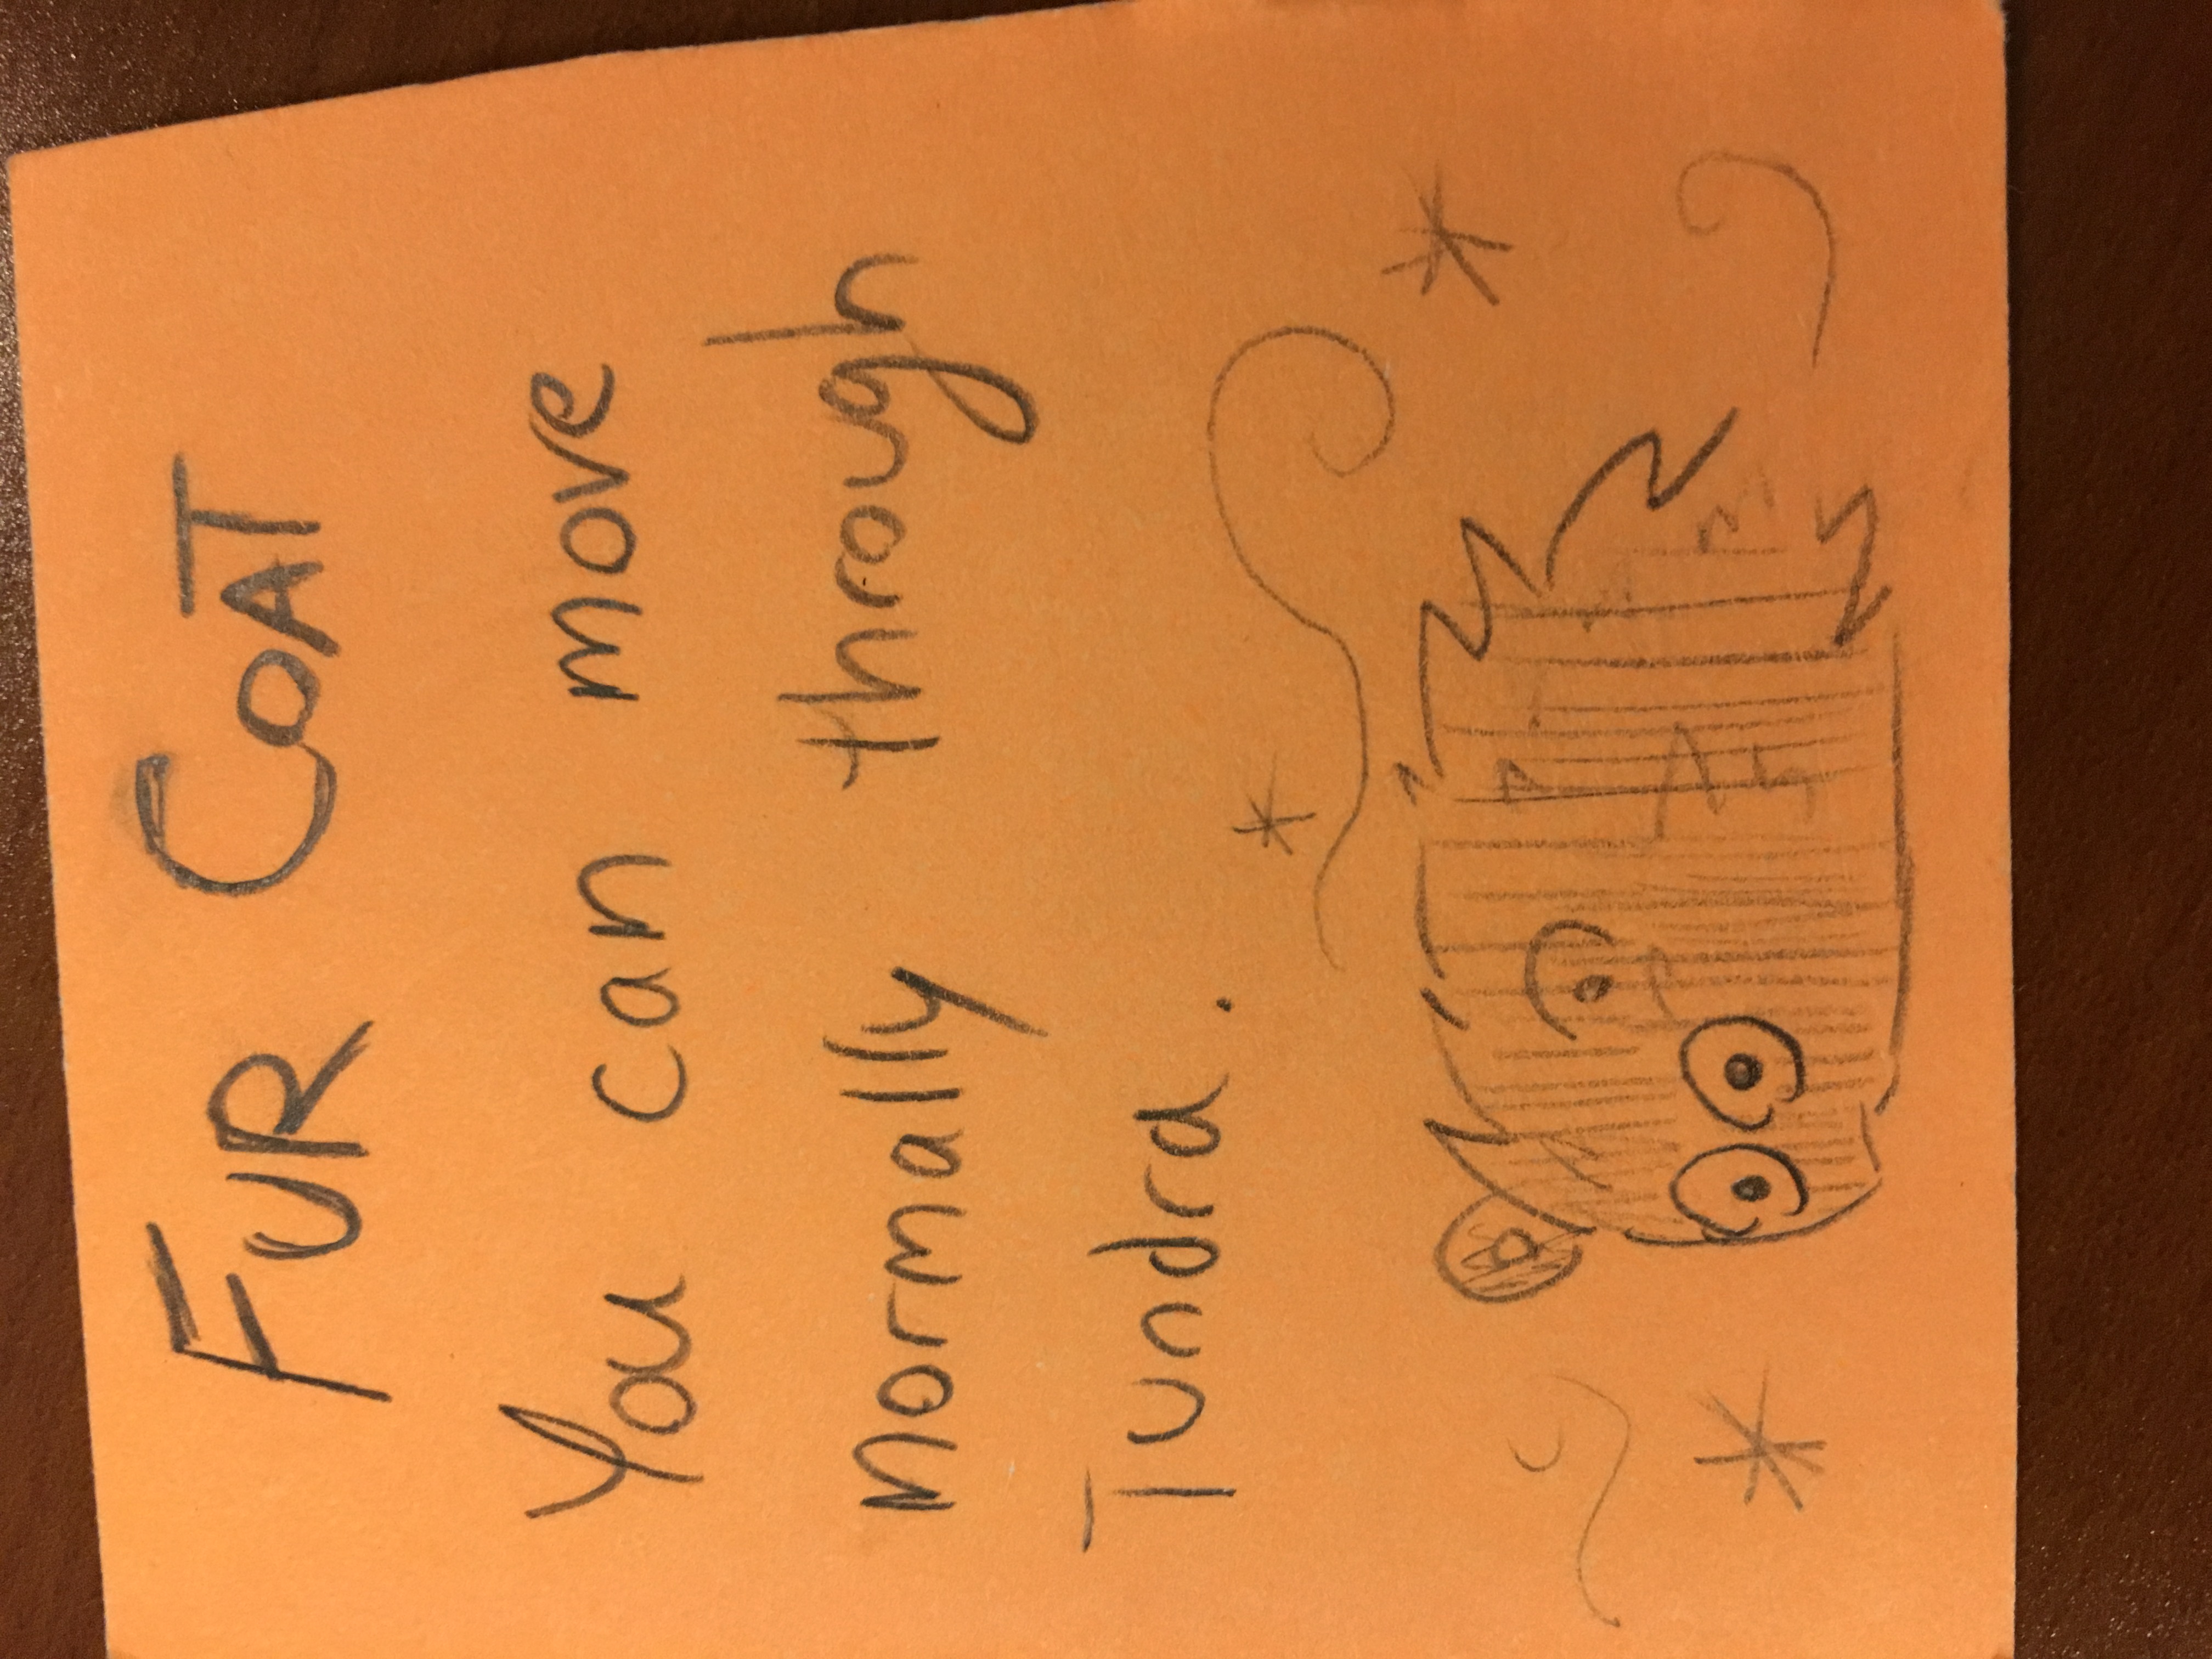 FUR COAT
You can move
normally through
Tundra.